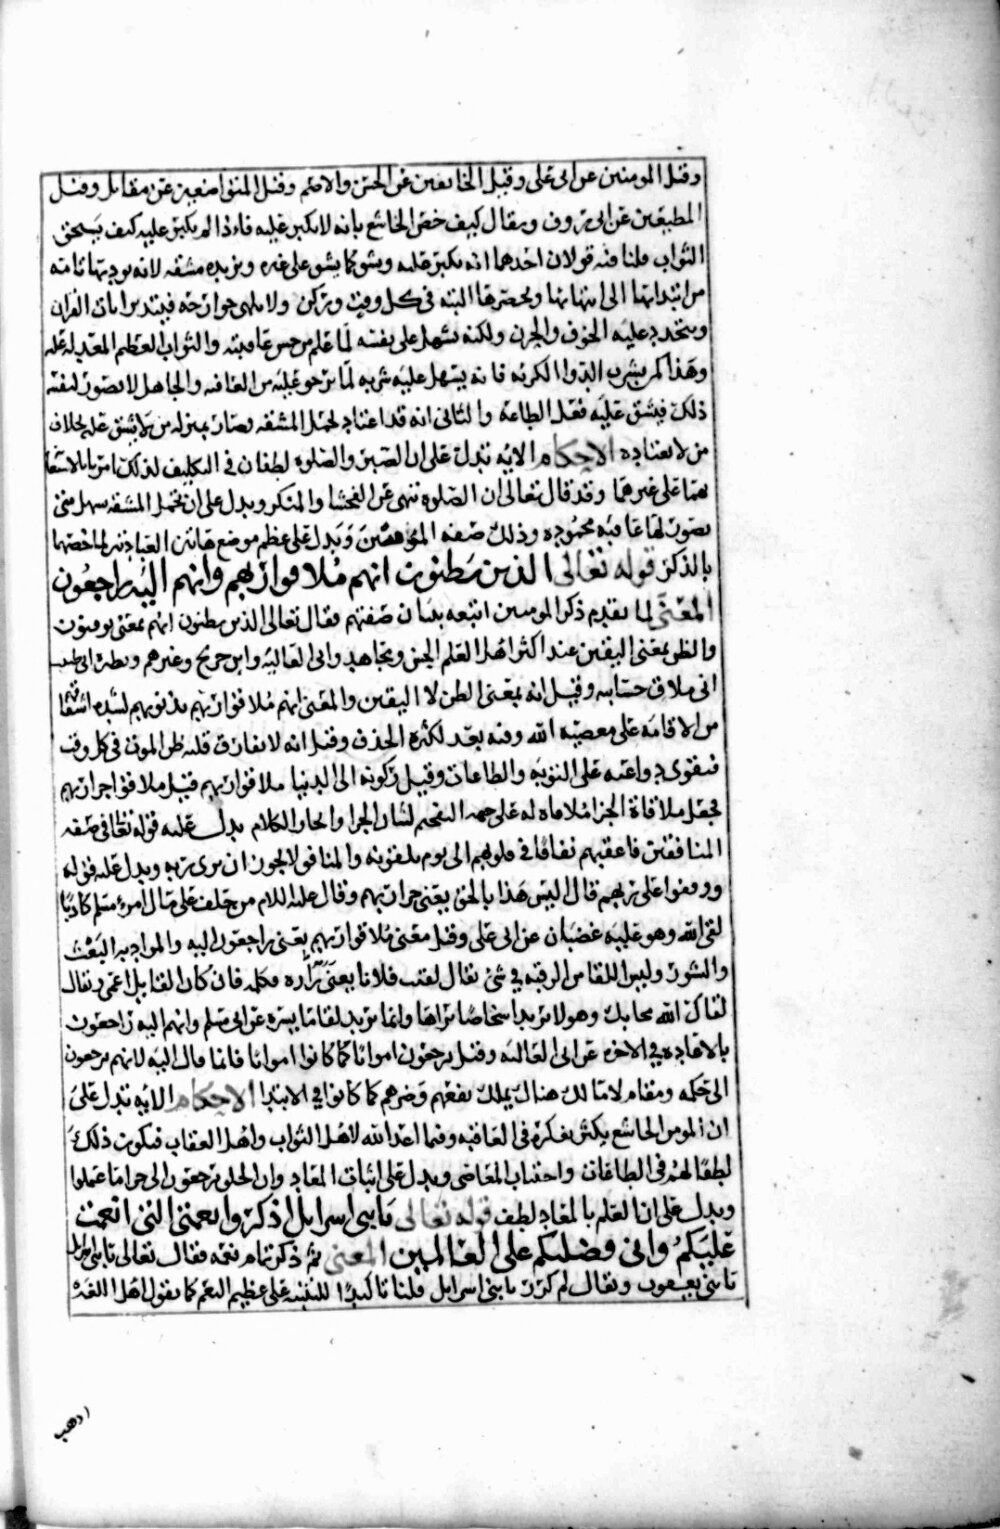 وقيل المومنين عن ابي علي وقيل الخائفين عن الحسن والاصم وقيل المتواضعين عن مقاتل وقيل
المطيعين عن ابي روق ويقال كيف خص الخاشع بانه لا يكبر عليه فاذا لم يكبر عليه كيف يستحق
الثواب قلنا فيه قولان احدهما انه يكبر عليه ويشق كما يشق على غيره ويزيده مشقه لانه يوديها تامه
من ابتدائها الى انتهائها ويحضرها النيه في كل وقت وركن ولا يلهي جوارحه فيتدبر ايات القران
ويتجدد عليه الخوف والحزن ولكنه يسهل على نفسه لما علم من حسن عاقبته والثواب العظيم المعد له عليه
وهذا كمن يشرب الدوا الكريه فانه يسهل عليه شربه لما يرجو عليه من العافيه والجاهل لا يتصور لنفسه
ذلك فيشق عليه فعل الطاعة والثاني انه قد اعتاد تحمل المشقه فصار بمنزله من لا يشق عليه بخلاف
من لا يعتاده الاحكام الايه تدل على ان الصبر والصلوه لطفان في التكليف لذلك امرنا بالاستعانة
بهما على غيرهما وقد قال تعالى ان الصلوه تنهى عن الفحشا والمنكر ويدل على ان تحمل المشقه سهل متى
تصور لها عاقبه محموده وذلك صفه المومنين ويدل على عظم موضع هاتين العبادتين لما خصهما
بالذكر قوله تعالى الذين يظنون انهم ملاقوا ربهم وانهم اليه راجعون
المعنى لما تقدم ذكر المومنين اتبعه ببيان صفتهم فقال تعالى الذين يظنون انهم بمعنى يوقنون
والظن بمعنى اليقين عند اكثر اهل العلم الحسن ومجاهد وابي العاليه وابن جريج وغيرهم ونظيره اني ظننت
اني ملاق حسابيه وقيل انه بمعنى الظن لا اليقين والمعنى انهم ملاقوا ربهم بذنوبهم لشده اشفاقهم
من الاقامه على معصيه الله وفيه بعد لكثره الحذف وقيل انه لا يفارق قلبه ظن الموت في كل وقت
فتقوى دواعيه على التوبه والطاعات وقيل ركونه الى الدنيا ملاقوا ربهم قيل ملاقوا جزا ربهم
فجعل ملاقاة الجزا ملاقاه له على جهه التفخيم لشان الجزا وايجاز الكلام يدل عليه قوله تعالى في صفه
المنافقين فاعقبهم نفاقا في قلوبهم الى يوم يلقونه والمنافق لا يجوز ان يرى ربه ويدل عليه قوله
ووقفوا على ربهم قال اليس هذا بالحق يعني جزا ربهم وقال عليه السلام من حلف على مال امرء مسلم كاذبا
لقي الله وهو عليه غضبان عن ابي علي وقيل معنى ملاقوا ربهم يعني راجعون اليه والمراد به البعث
والنشور وليس اللقا من الرويه في شئ يقال لقيت فلانا يعني زاره وكلمه فان كان القايل اعمى ويقال
لقاك الله محابك وهو لا يريد اشخاصا تراها وانما يريد لقا ما يسره عن ابي مسلم وانهم اليه راجعون
بالاعاده في الاخره عن ابي العاليه وقيل يرجعون امواتا كما كانوا امواتا فانما قال اليه لانهم يرجعون
الى حكمه ومقام لا مالك هناك يملك نفعهم وضرهم كما كانوا في الابتدا الاحكام الايه تدل على
ان المومن الخاشع يكثر تفكره في العاقبه وفيما اعد الله لاهل الثواب واهل العقاب فيكون ذلك
لطفا لهم في الطاعات واجتناب المعاصي ويدل على اثبات المعاد وان الخلق يرجعون الى جزا ما عملوا
ويدل على ان العلم بالمعاد لطف قوله تعالى يا بني اسرايل اذكروا نعمتي التي انعمت
عليكم واني فضلتكم على العالمين المعنى ثم ذكر تمام نعمه فقال تعالى يا بني اسرايل
يا بني يعقوب ويقال لم كرر يا بني اسرايل قلنا تاكيدا للتنبيه على عظيم النعم كما يقول اهل اللغه
اذهب